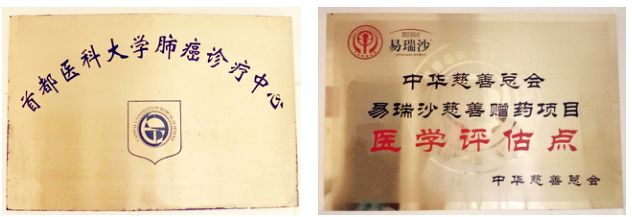 首都医科大学肺癌诊疗中心
IRESSA
易瑞沙
中华慈善总会
易瑞沙慈善赠药项目
医学评估点
中华慈善总会